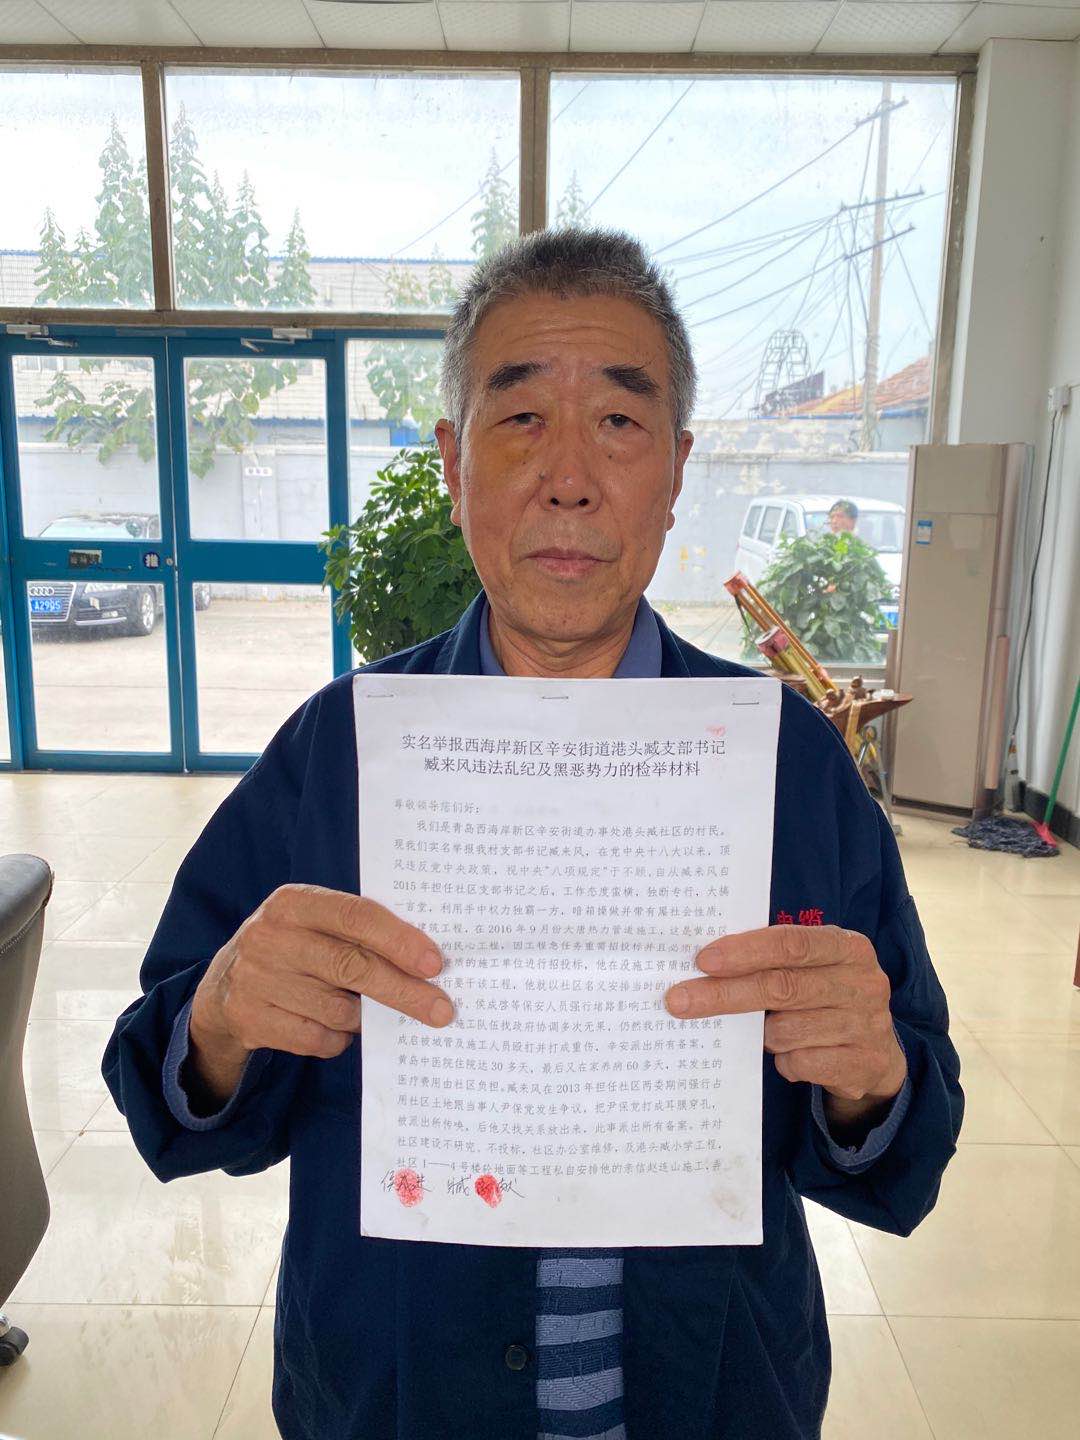 实名举报西海岸新区辛安街道港头臧支部书记
臧来风违法乱纪及黑恶势力的检举材料
尊敬领导您们好:
我们是青岛西海岸新区辛安街道办事处港头臧社区的村民。
现我们实名举报我村支部书记臧来风，在党中央十八大以来，顶
风违反党中央政策，视中央“八项规定”于不顾，自从臧来风自
2015年担任社区支部书记之后，工作态度蛮横，独断专行，大搞
一言堂，利用手中权力独霸一方，暗箱操做并带有黑社会性质，
建筑工程，在2016年9月份大唐热力管道施工，这是黄岛区
的民心工程，因工程急任务重需招投标并且必须
资质的施工单位进行招投标，他在没施工资质招
行要干该工程，他就以社区名义安排当时的
侯成啓等保安人员强行堵路影响工程
施工队伍找政府协调多次无果，仍然我行我素致使侯
成启被城管及施工人员殴打并打成重伤，辛安派出所有备案，在
黄岛中医院住院达30多天，最后又在家养病60多天，其发生的
医疗费用由社区负担。臧来风在2013年担任社区两委期间强行占
用社区土地跟当事人尹保党发生争议，把尹保党打成耳膜穿孔，
被派出所传唤，后他又找关系放出来，此事派出所有备案。并对
社区建设不研究、不投标，社区办公室维修，及港头臧小学工程，
社区1——4号楼砼地面等工程私自安排他的亲信赵连山施工，吞
A2995